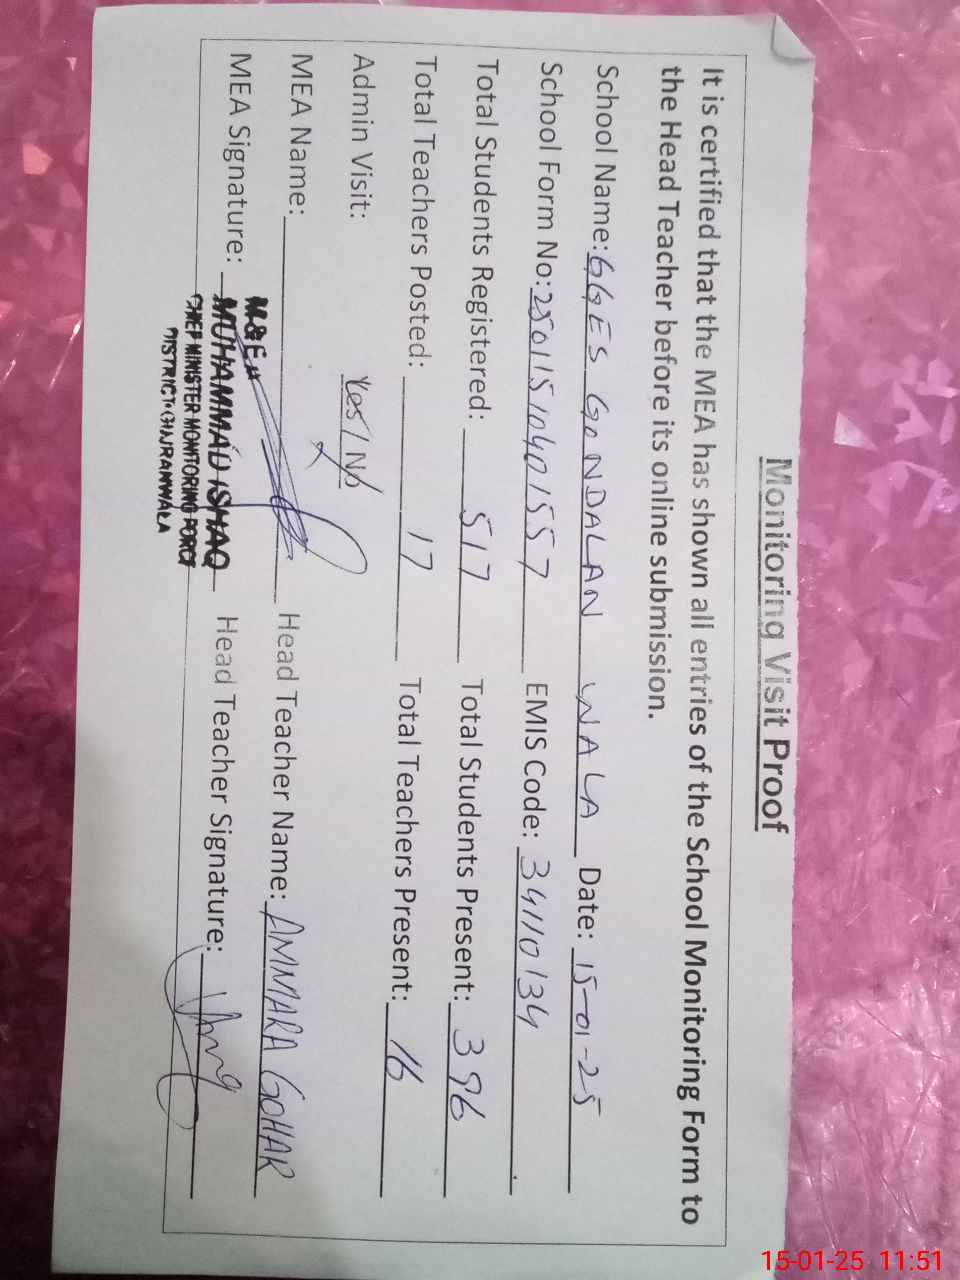 Monitoring Visit Proof
It is certified that the MEA has shown all entries of the School Monitoring Form to
the Head Teacher before its online submission.
School Name: GGES GONDALAN WALA Date: 15-01-25
School Form No: 25011510401557 EMIS Code: 34110134
Total Students Registered: 517 Total Students Present: 396
Total Teachers Posted: 17 Total Teachers Present: 16
Admin Visit: Yes/No
MEA Name: Head Teacher Name: AMMARA GOHAR
MEA Signature: Head Teacher Signature:
M&EA
MUHAMMAD ISHAQ
CHIEF MINISTER MONITORING FORCE
DISTRICT GUJRANWALA
15-01-25 11:51